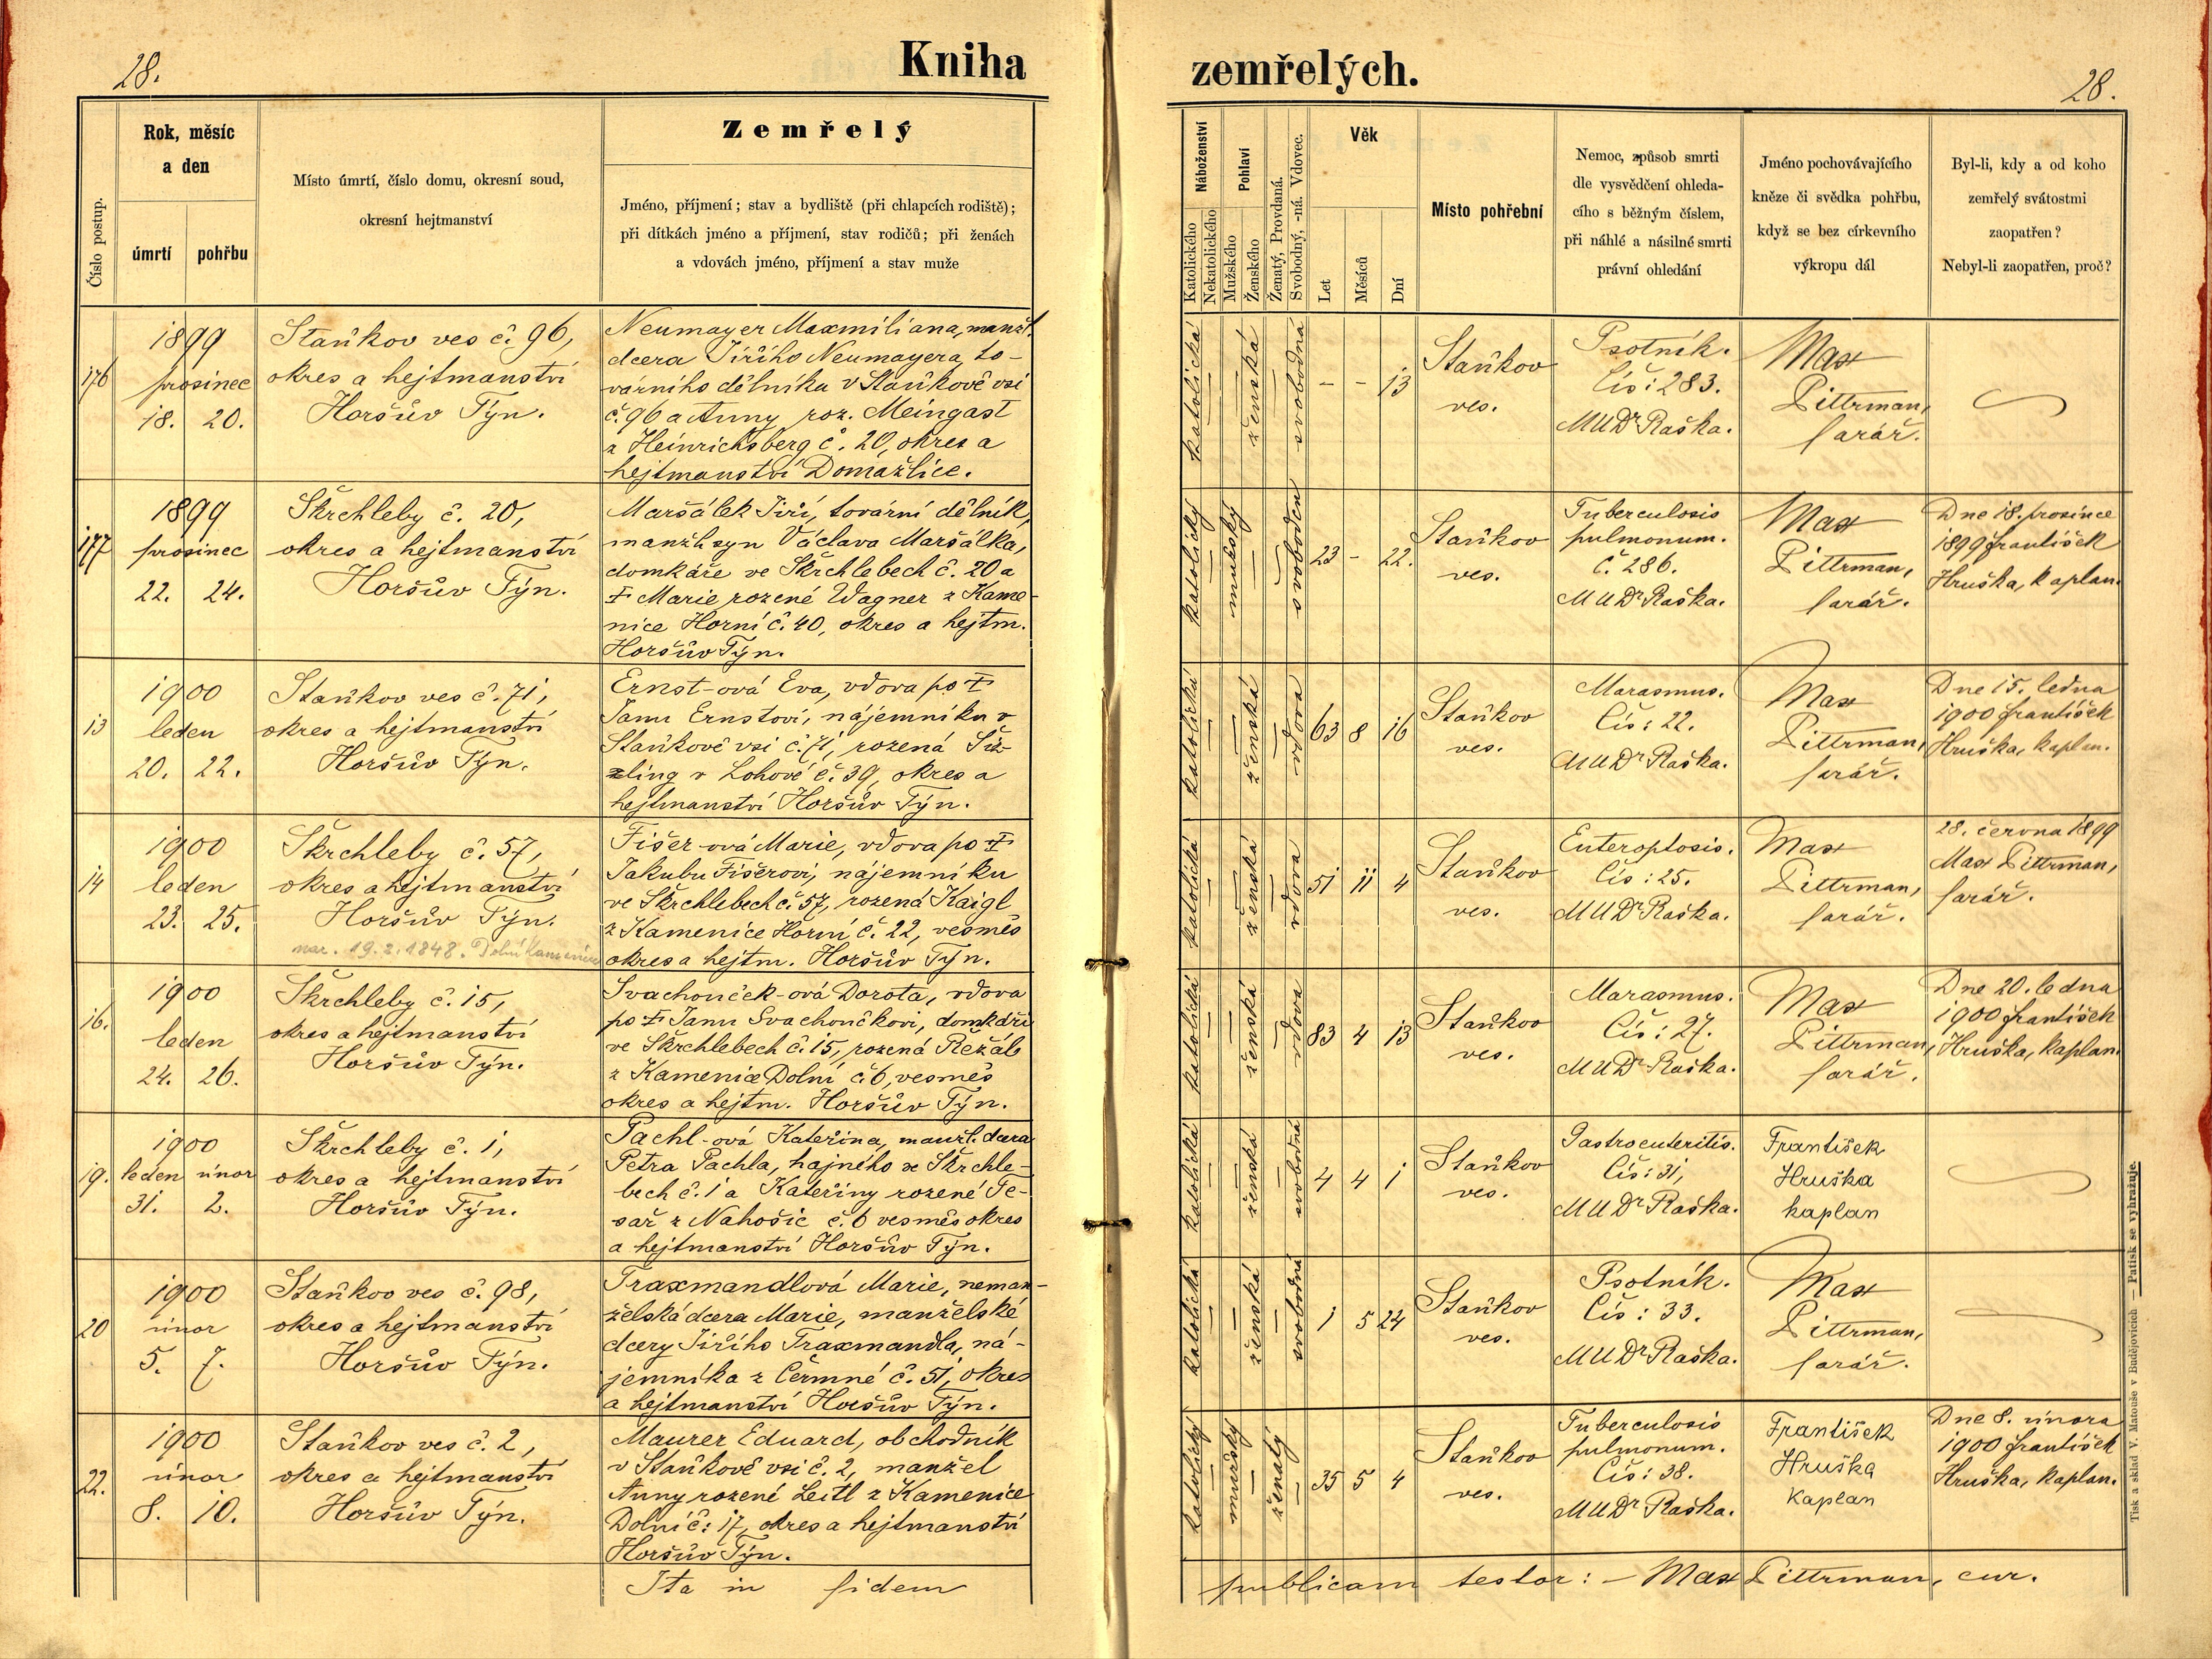 28.
Kniha
Číslo postup.
Rok, měsíc
a den
úmrtí
pohřbu
Místo úmrtí, číslo domu, okresní soud,
okresní hejtmanství
Zemřelý
Jméno, příjmení; stav a bydliště (při chlapcích rodiště);
při dítkách jméno a příjmení, stav rodičů; při ženách
a vdovách jméno, příjmení a stav muže
176
1899
prosinec
18. 20.
Staňkov ves č. 96,
okres a hejtmanství
Horšův Týn.
Neumayer Maxmiliana, manžl.
dcera Jiřího Neumayera, to-
várního dělníka v Staňkově vsi
č. 96 a Anny roz. Meingast
z Heinrichsberg č. 20, okres a
hejtmanství Domažlice.
177
1899
prosinec
22. 24.
Škrchleby č. 20,
okres a hejtmanství
Horšův Týn.
Maršálek Jiří, tovární dělník,
manžl. syn Václava Maršálka,
domkáře ve Škrchlebech č. 20 a
† Marie rozené Wagner z Kame-
nice Horní č. 40, okres a hejtm.
Horšův Týn.
13
1900
leden
20. 22.
Staňkov ves č. 71,
okres a hejtmanství
Horšův Týn.
Ernst-ová Eva, vdova po †
Janu Ernstovi, nájemníku v
Staňkově vsi č. 71, rozená
v Lohově č. 39, okres a
hejtmanství Horšův Týn.
14
1900
leden
23. 25.
Škrchleby č. 57,
okres a hejtmanství
Horšův Týn.
nar. 19.2.1848. Dolní Kamenice
Fišer-ová Marie, vdova po †
Jakubu Fišerovi, nájemníku
ve Škrchlebech č. 57, rozená Kaigl
z Kamenice Horní č. 22, vesměs
okres a hejtm. Horšův Týn.
16.
1900
leden
24. 26.
Škrchleby č. 15,
okres a hejtmanství
Horšův Týn.
Svachouček-ová Dorota, vdova
po † Janu Svachoučkovi, domkáři
ve Škrchlebech č. 15, rozená Řežáb
z Kamenice Dolní č. 6, vesměs
okres a hejtm. Horšův Týn.
19.
1900
leden únor
31. 2.
Škrchleby č. 1,
okres a hejtmanství
Horšův Týn.
Pachl-ová Kateřina, manžl. dcera
Petra Pachla, hajného ve Škrchle-
bech č. 1 a Kateřiny rozené Te-
sař z Nahošic č. 6 vesměs okres
a hejtmanství Horšův Týn.
20
1900
únor
5. 7.
Staňkov ves č. 98,
okres a hejtmanství
Horšův Týn.
Traxmandlová Marie, neman-
želská dcera Marie, manželské
dcery Jiřího Traxmandla, ná-
jemníka z Čermné č. 51, okres
a hejtmanství Horšův Týn.
22.
1900
únor
8. 10.
Staňkov ves č. 2,
okres a hejtmanství
Horšův Týn.
Maurer Eduard, obchodník
v Staňkově vsi č. 2, manžel
Anny rozené Leitl z Kamenice
Dolní č: 17, okres a hejtmanství
Horšův Týn.
Ita in fidem
zemřelých.
28.
Náboženství
Katolického
Nekatolického
Pohlaví
Mužského
Ženského
Ženatý, Provdaná.
Svobodný, -ná. Vdovec.
Věk
Let
Měsíců
Dní
Místo pohřební
Nemoc, způsob smrti
dle vysvědčení ohleda-
cího s běžným číslem,
při náhlé a násilné smrti
právní ohledání
Jméno pochovávajícího
kněze či svědka pohřbu,
když se bez církevního
výkropu dál
Byl-li, kdy a od koho
zemřelý svátostmi
zaopatřen?
Nebyl-li zaopatřen, proč?
katolická
ženská
svobodná
- - 13
Staňkov
ves.
Psotník.
Čís: 283.
MUDr Raška.
Max
Pittrman,
farář.
katolický
mužský
svoboden
23 - 22.
Staňkov
ves.
Tuberculosis
pulmonum.
Č. 286.
MUDr Raška.
Max
Pittrman,
farář.
Dne 18. prosince
1899 František
Hruška, kaplan.
katolická
ženská
vdova
63 8 16
Staňkov
ves.
Marasmus.
Čís: 22.
MUDr Raška.
Max
Pittrman,
farář.
Dne 15. ledna
1900 František
Hruška, kaplan.
katolická
ženská
vdova
51 11 4
Staňkov
ves.
Enteroptosis.
Čís: 25.
MUDr Raška.
Max
Pittrman,
farář.
28. června 1899
Max Pittrman,
farář.
katolická
ženská
vdova
83 4 13
Staňkov
ves.
Marasmus.
Čís: 27.
MUDr Raška.
Max
Pittrman,
farář.
Dne 20. ledna
1900 František
Hruška, kaplan.
katolická
ženská
svobodná
4 4 1
Staňkov
ves.
Gastroenteritis.
Čís: 31,
MUDr Raška.
František
Hruška
kaplan
katolická
ženská
svobodná
1 5 24
Staňkov
ves.
Psotník.
Čís: 33.
MUDr Raška.
Max
Pittrman,
farář.
katolický
mužský
ženatý
35 5 4
Staňkov
ves.
Tuberculosis
pulmonum.
Čís: 38.
MUDr Raška.
František
Hruška
Kaplan
Dne 8. února
1900 František
Hruška, kaplan.
publicam testor: - Max Pittrman, cur.
Tisk a sklad V. Matouše v Budějovicích — Patisk se vyhražuje.